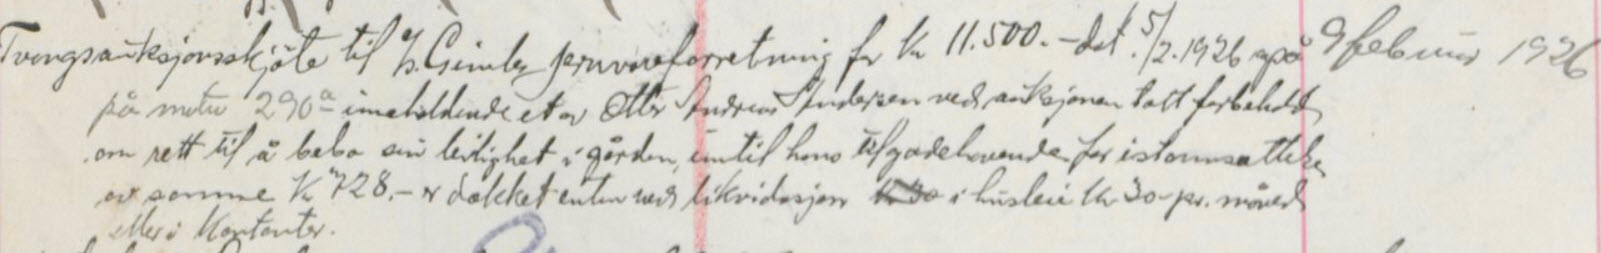 Tvangsauksjonsskjöte til A/S. Gimle jernvareforretning for kr 11.500.- dat. 5/2.1926 9 februar 1926
på matr 290a inneholdende et av Otto Andreas Andersen ved auksjonen tatt forbehold
om rett til å bebo sin leilighet i gården, inntil hans tilgodehavende for istandsettelse
av samme kr 728.- er dekket enten ved likvidasjon i husleie kr 30- pr. måned
eller i kontanter.